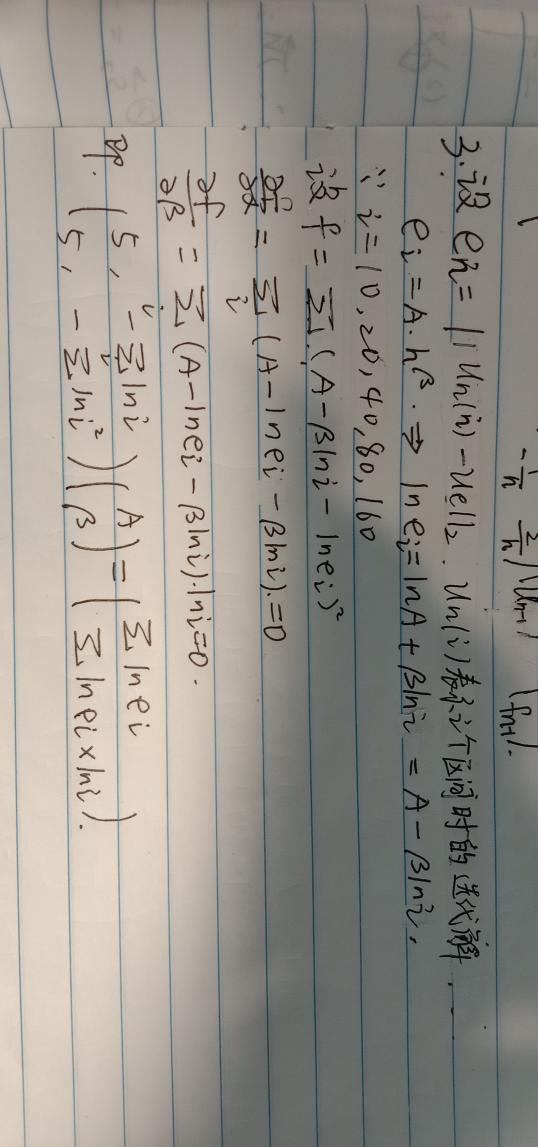 -1/n 2/h) (Un+1) (fn+1).
3.设 ei = ||Un(i) - Ue||₂. Un(i)表示i个区间时的迭代解.
ei = A·h^β. ⇒ ln ei = ln A + β ln i = A - β ln i.
∵ i = 10, 20, 40, 80, 160
设 f = Σ (A - β ln i - ln ei)²
∂f/∂α = Σ_i (A - ln ei - β ln i). = 0
∂f/∂β = Σ_i (A - ln ei - β ln i)·ln i = 0.
即. ( 5, -Σ ln i ) ( A ) = ( Σ ln ei )
( 5, -Σ ln i² ) ( β ) ( Σ ln ei × ln i ).